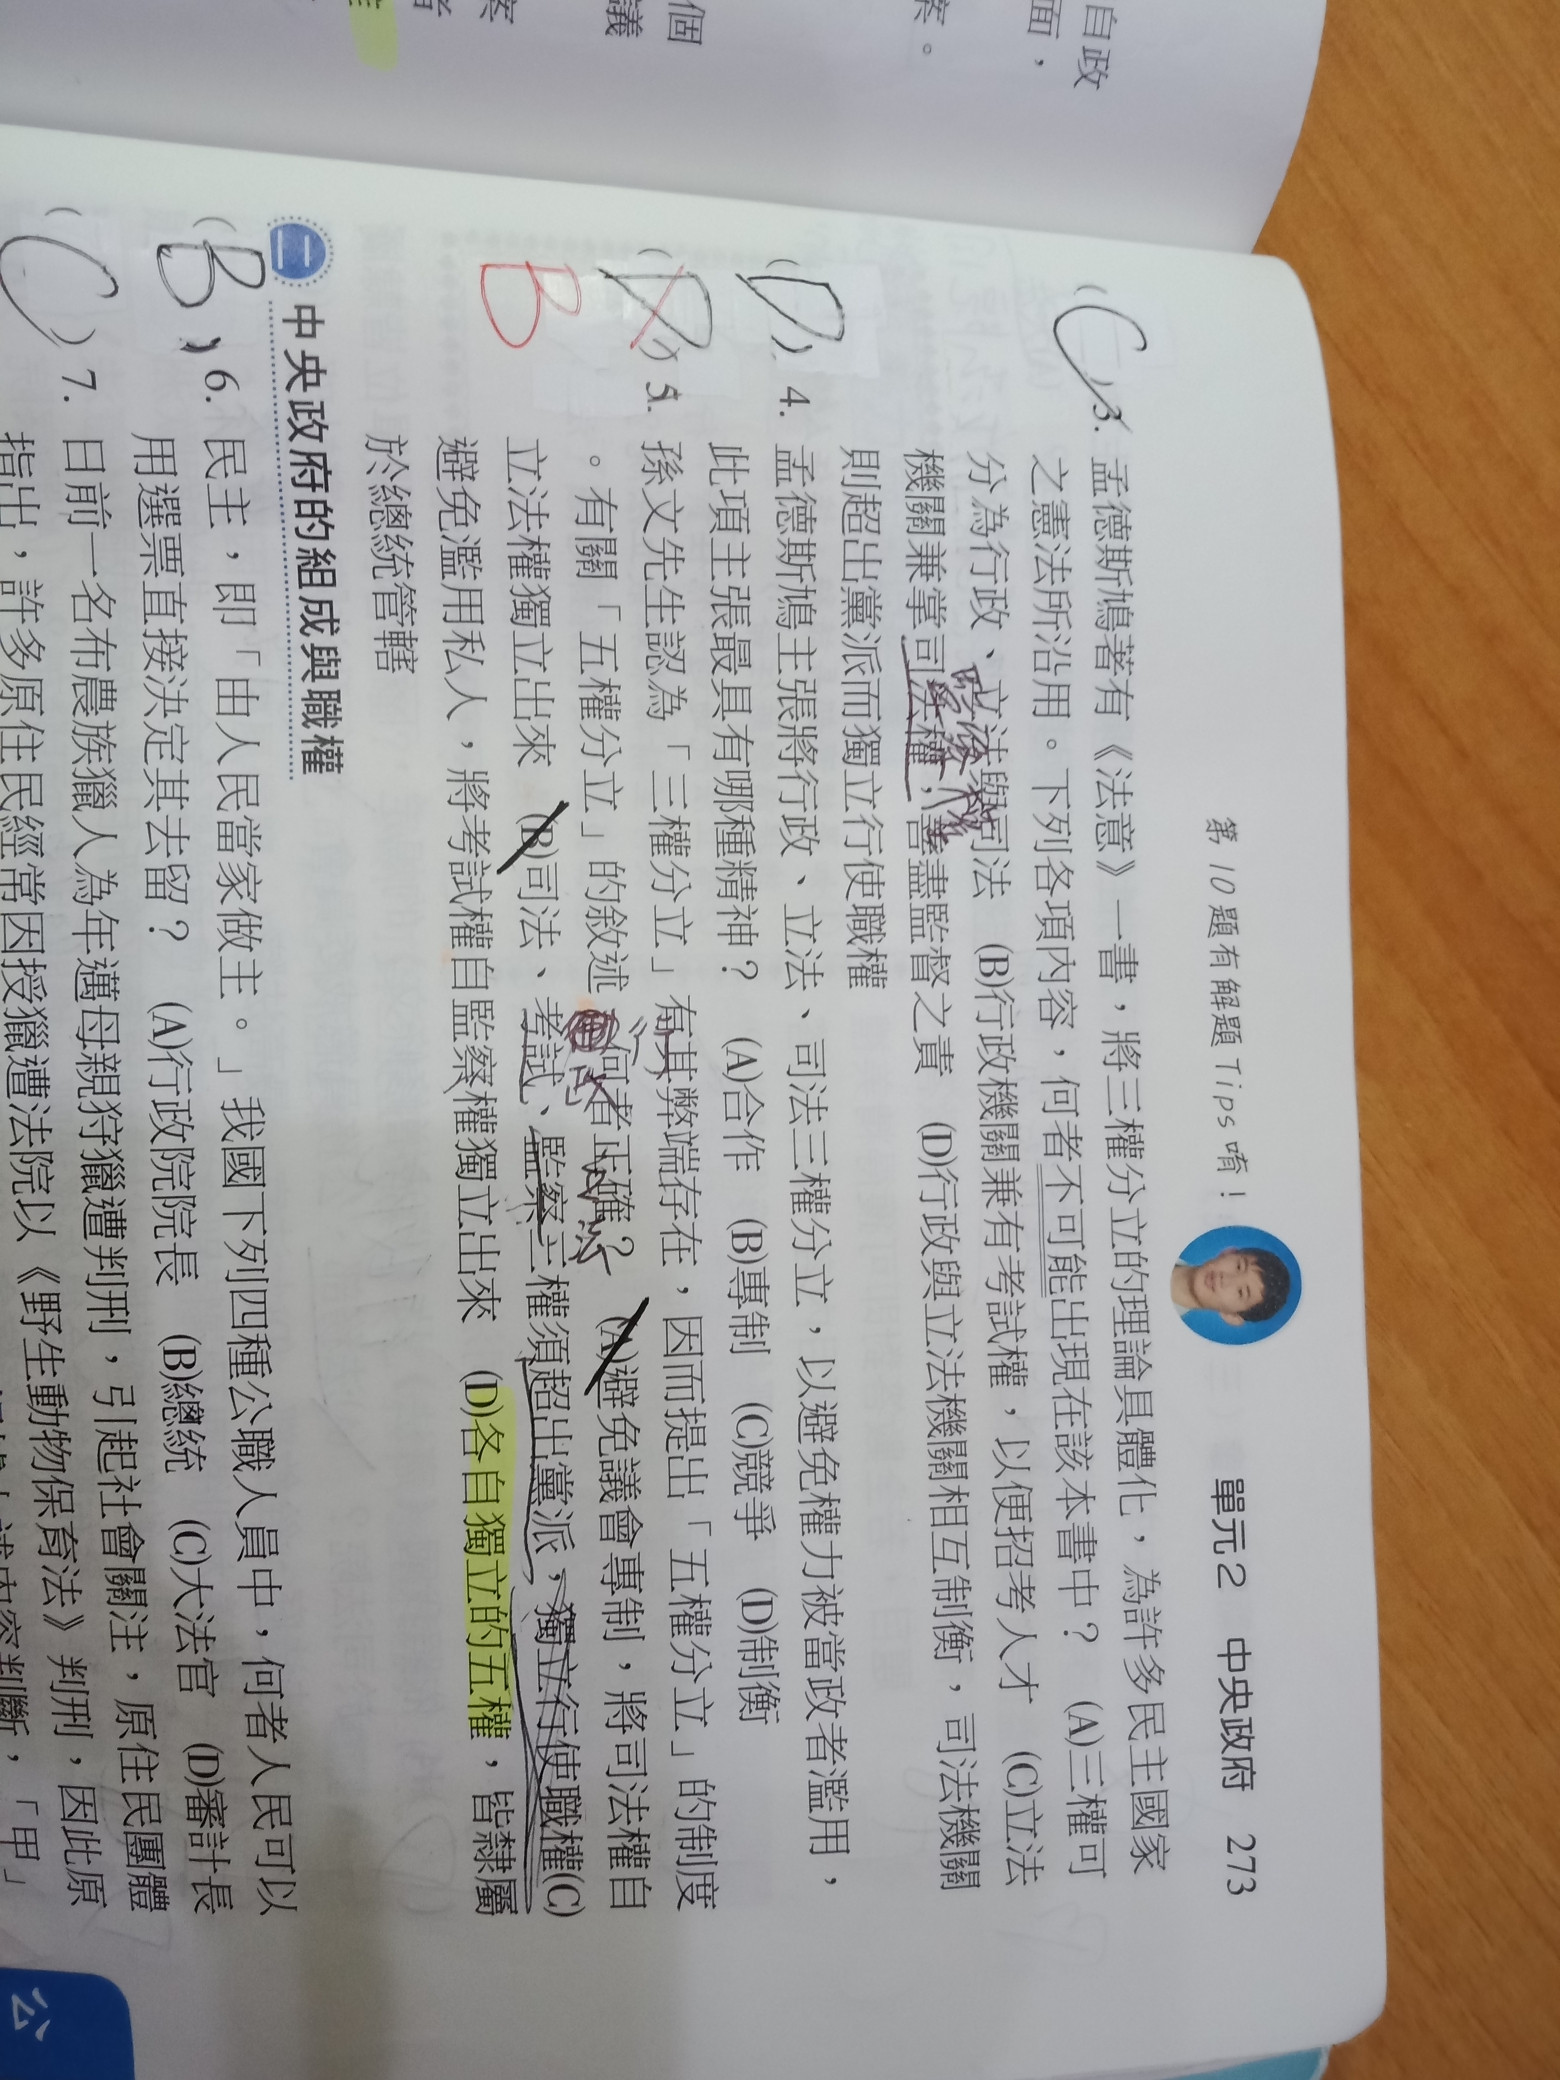 自政
面，
察。
個
議
察
者
第10題有解題Tips唷！
單元2　中央政府　273
(C)3. 孟德斯鳩著有《法意》一書，將三權分立的理論具體化，為許多民主國家
之憲法所沿用。下列各項內容，何者不可能出現在該本書中？　(A)三權可
分為行政、立法與司法　(B)行政機關兼有考試權，以便招考人才　(C)立法
機關兼掌司法權，善盡監督之責　(D)行政與立法機關相互制衡，司法機關
則超出黨派而獨立行使職權
(D)4. 孟德斯鳩主張將行政、立法、司法三權分立，以避免權力被當政者濫用，
此項主張最具有哪種精神？　(A)合作　(B)專制　(C)競爭　(D)制衡
(D)5. 孫文先生認為「三權分立」有其弊端存在，因而提出「五權分立」的制度
B
。有關「五權分立」的敘述，何者正確？　(A)避免議會專制，將司法權自
立法權獨立出來　(B)司法、考試、監察三權須超出黨派，獨立行使職權(C)
避免濫用私人，將考試權自監察權獨立出來　(D)各自獨立的五權，皆隸屬
於總統管轄
二 中央政府的組成與職權
(B)6. 民主，即「由人民當家做主。」我國下列四種公職人員中，何者人民可以
用選票直接決定其去留？　(A)行政院院長　(B)總統　(C)大法官　(D)審計長
(C)7. 日前一名布農族獵人為年邁母親狩獵遭判刑，引起社會關注，原住民團體
指出，許多原住民經常因授獵遭法院以《野生動物保育法》判刑，因此原
公